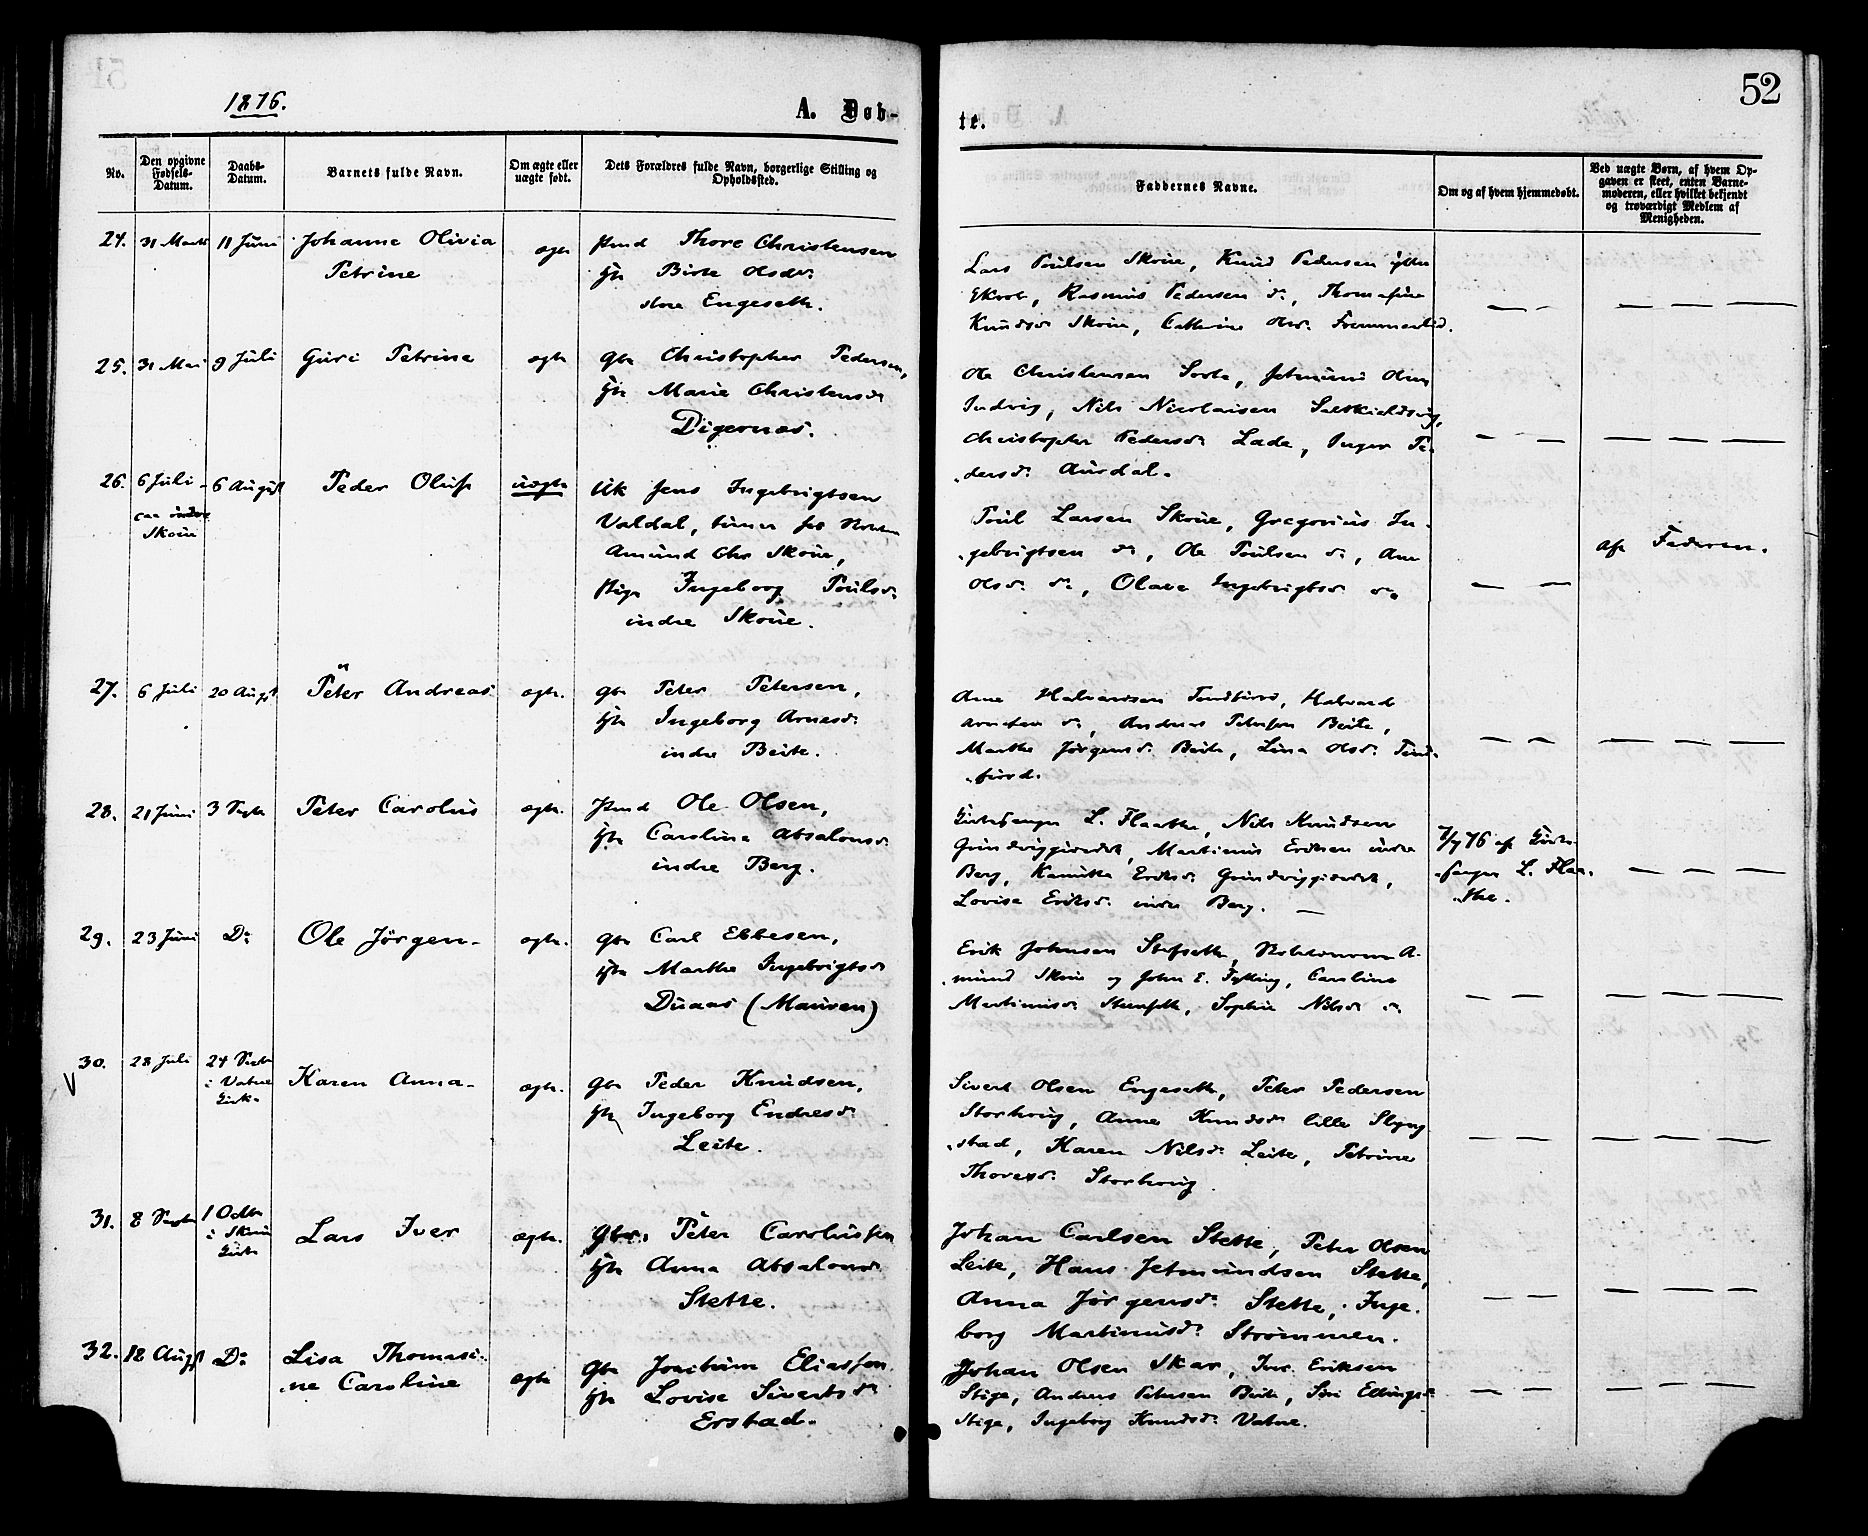 1876.
A. Døb-
te.
52
No.
Den opgivne Fødsels-Datum.
Daabs-Datum.
Barnets fulde Navn.
Om ægte eller uægte født.
Dets Forældres fulde Navn, borgerlige Stilling og Opholdssted.
Faddernes Navne.
Om og af hvem hjemmedøbt.
Ved uægte Børn, af hvem Opgaven er skeet, enten Barnemoderen, eller hvilket bekjendt og troværdigt Medlem af Menigheden.
24. 31 Marts 11 Juni Johanne Olivia ægte Thore Christensen
Petrine Birte Olsdr
Engeseth.
Lars Poulsen Skoue, Knud Pedersen ytter
Rasmus Pedersen do, Thomasine
Knudsdr Skoue, Cathrine Olsdr
25. 31 Mai 9 Juli Guri Petrine ægte Gbr Christopher Pedersen,
Marie Christensdr
Digernæs.
Ole Christensen Jetmund Olsen
Indvig, Nils Nicolaisen
Christopher Pedersdr Lade, Inger Pe-
dersdr Aurdal.
26. 6 Juli 6 August Peder Oluf uægte Uk Jens Ingebrigtsen
indre Skoue Valdal, tjener
Amund Chr Skoue,
Pige Ingeborg Poulsdr
indre Skoue.
Poul Larsen Skoue, Gregorius In-
gebrigtsen do, Ole Poulsen do, Ane
Olsdr do, Olave Ingebrigtsdr do
af Faderen.
27. 6 Juli 20 Augst Peter Andreas ægte. Gbr Peter Petersen,
Ingeborg Arnesdr
indre Beite.
Arne Halvardsen Halvard
Arnesen do, Andreas Petersen Beite,
Marthe Jørgensdr Beite, Lina Olsdr
28. 21 Juni 3 Septr Peter Carolus ægte. Ole Olsen,
Caroline Absalonsdr
indre Berg.
Kirkesanger L. Flaathe, Nils Knudsen
Martinus Eriksen indre
Berg, Eriksdr
Lovise Eriksdr indre Berg.
76 af Kirke-
sanger L. Flaa-
the.
29. 23 Juni Do Ole Jørgen ægte. Gbr Carl Ebbesen,
Marthe Ingebrigtsdr
Duaas (Mauren)
Erik Johnsen A-
mund Skoue og John E. Fylling, Caroline
Martinusdr Sophie Nilsdr do
30. 28 Juli 24 Septr i Vatne Kirke Karen Anna ægte. Gbr Peder Knudsen,
Ingeborg Endresdr
Leite.
Sivert Olsen Engeseth, Peter Pedersen
Storhoug, Anne Knudsdr lille Slyng-
stad, Karen Nilsdr Leite, Petrine
Thoresdr Storhoug.
31. 8 Septr 1 Octbr i Skoue Kirke Lars Iver ægte. Gbr. Peter Carolussen
Anna Absalonsdr
Stette.
Johan Carlsen Stette, Peter Olsen
Leite, Hans Jetmundsen Stette,
Anna Jørgensdr Stette, Inge-
borg Martinusdr Strømmen.
32. 18 Augst Do Lisa Thomasi- ægte Gbr Joachim Eliassen
ne Caroline Lovise Sivertsdr
Erstad.
Johan Olsen Skar, Iver Eriksen
Stige, Anders Petersen Beite, Siri Ellingsdr
Stige, Ingeborg Knudsdr Vatne.